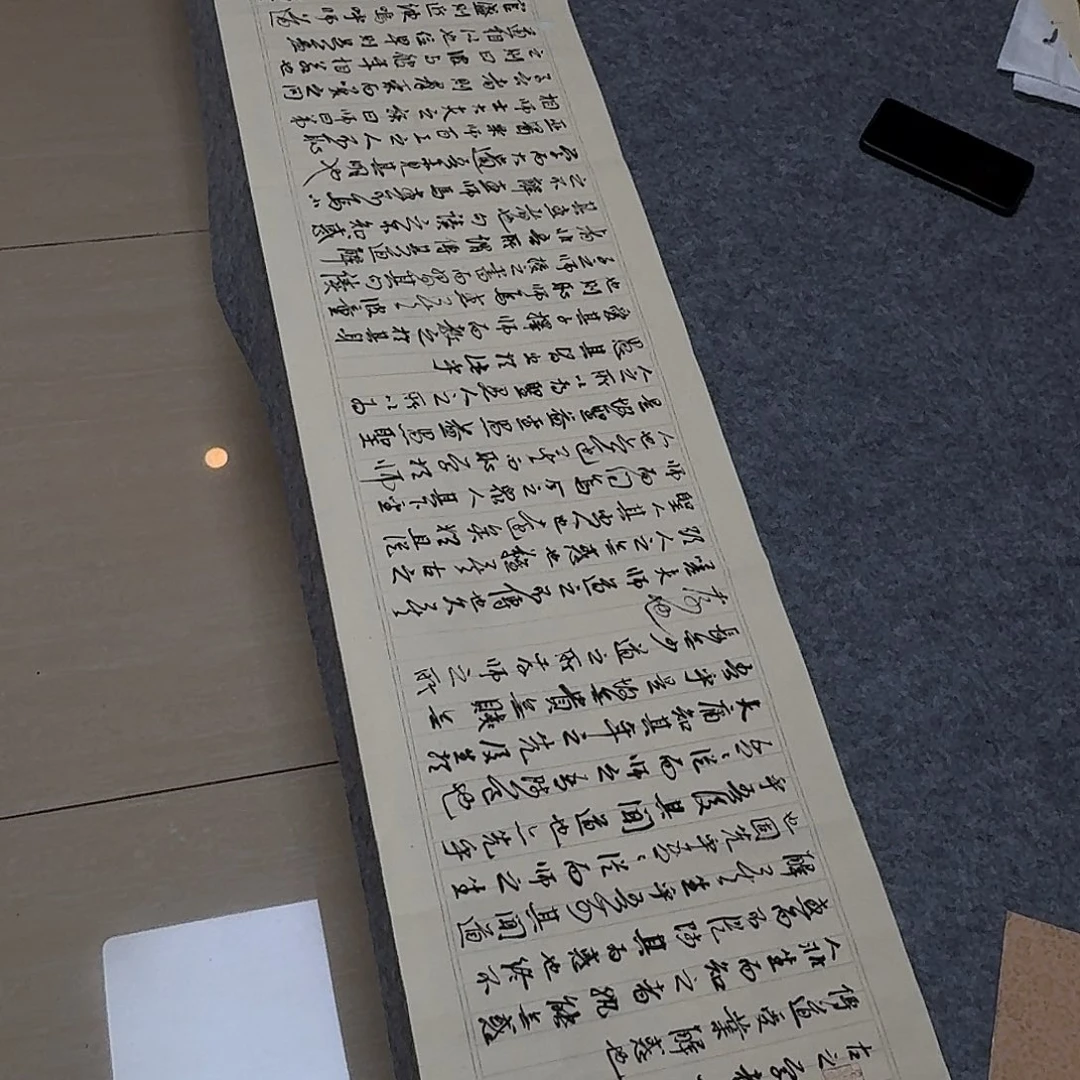 古之學者
傳道受業解惑也
人非生而知之者孰能無惑
惑而不從師其為惑也終不
解矣生乎吾前其聞道
也固先乎吾從而師之生
乎吾後其聞道也亦先乎
吾從而師之吾師道也
夫庸知其年之先後生於
吾乎是故無貴無賤無
長無少道之所存師之所
存也
嗟夫師道之不傳也久矣
欲人之無惑也難矣古之
聖人其出人也遠矣猶且從
師而問焉今之眾人其下聖
人也亦遠矣而恥學於師
是故聖益聖愚益愚聖
人之所以為聖愚人之所以為
愚其皆出於此乎
愛其子擇師而教之於其身
也則恥師焉惑矣彼童
子之師授之書而習其句讀
者非吾所謂傳其道解
其惑者也句讀之不知惑
之不解或師焉或不焉小
學而大遺吾未見其明也
巫醫樂師百工之人不恥
相師士大夫之族曰師曰弟
子云者則群聚而笑之問
之則曰彼與彼年相若也
道相似也位卑則足羞
官盛則近諛嗚呼師道